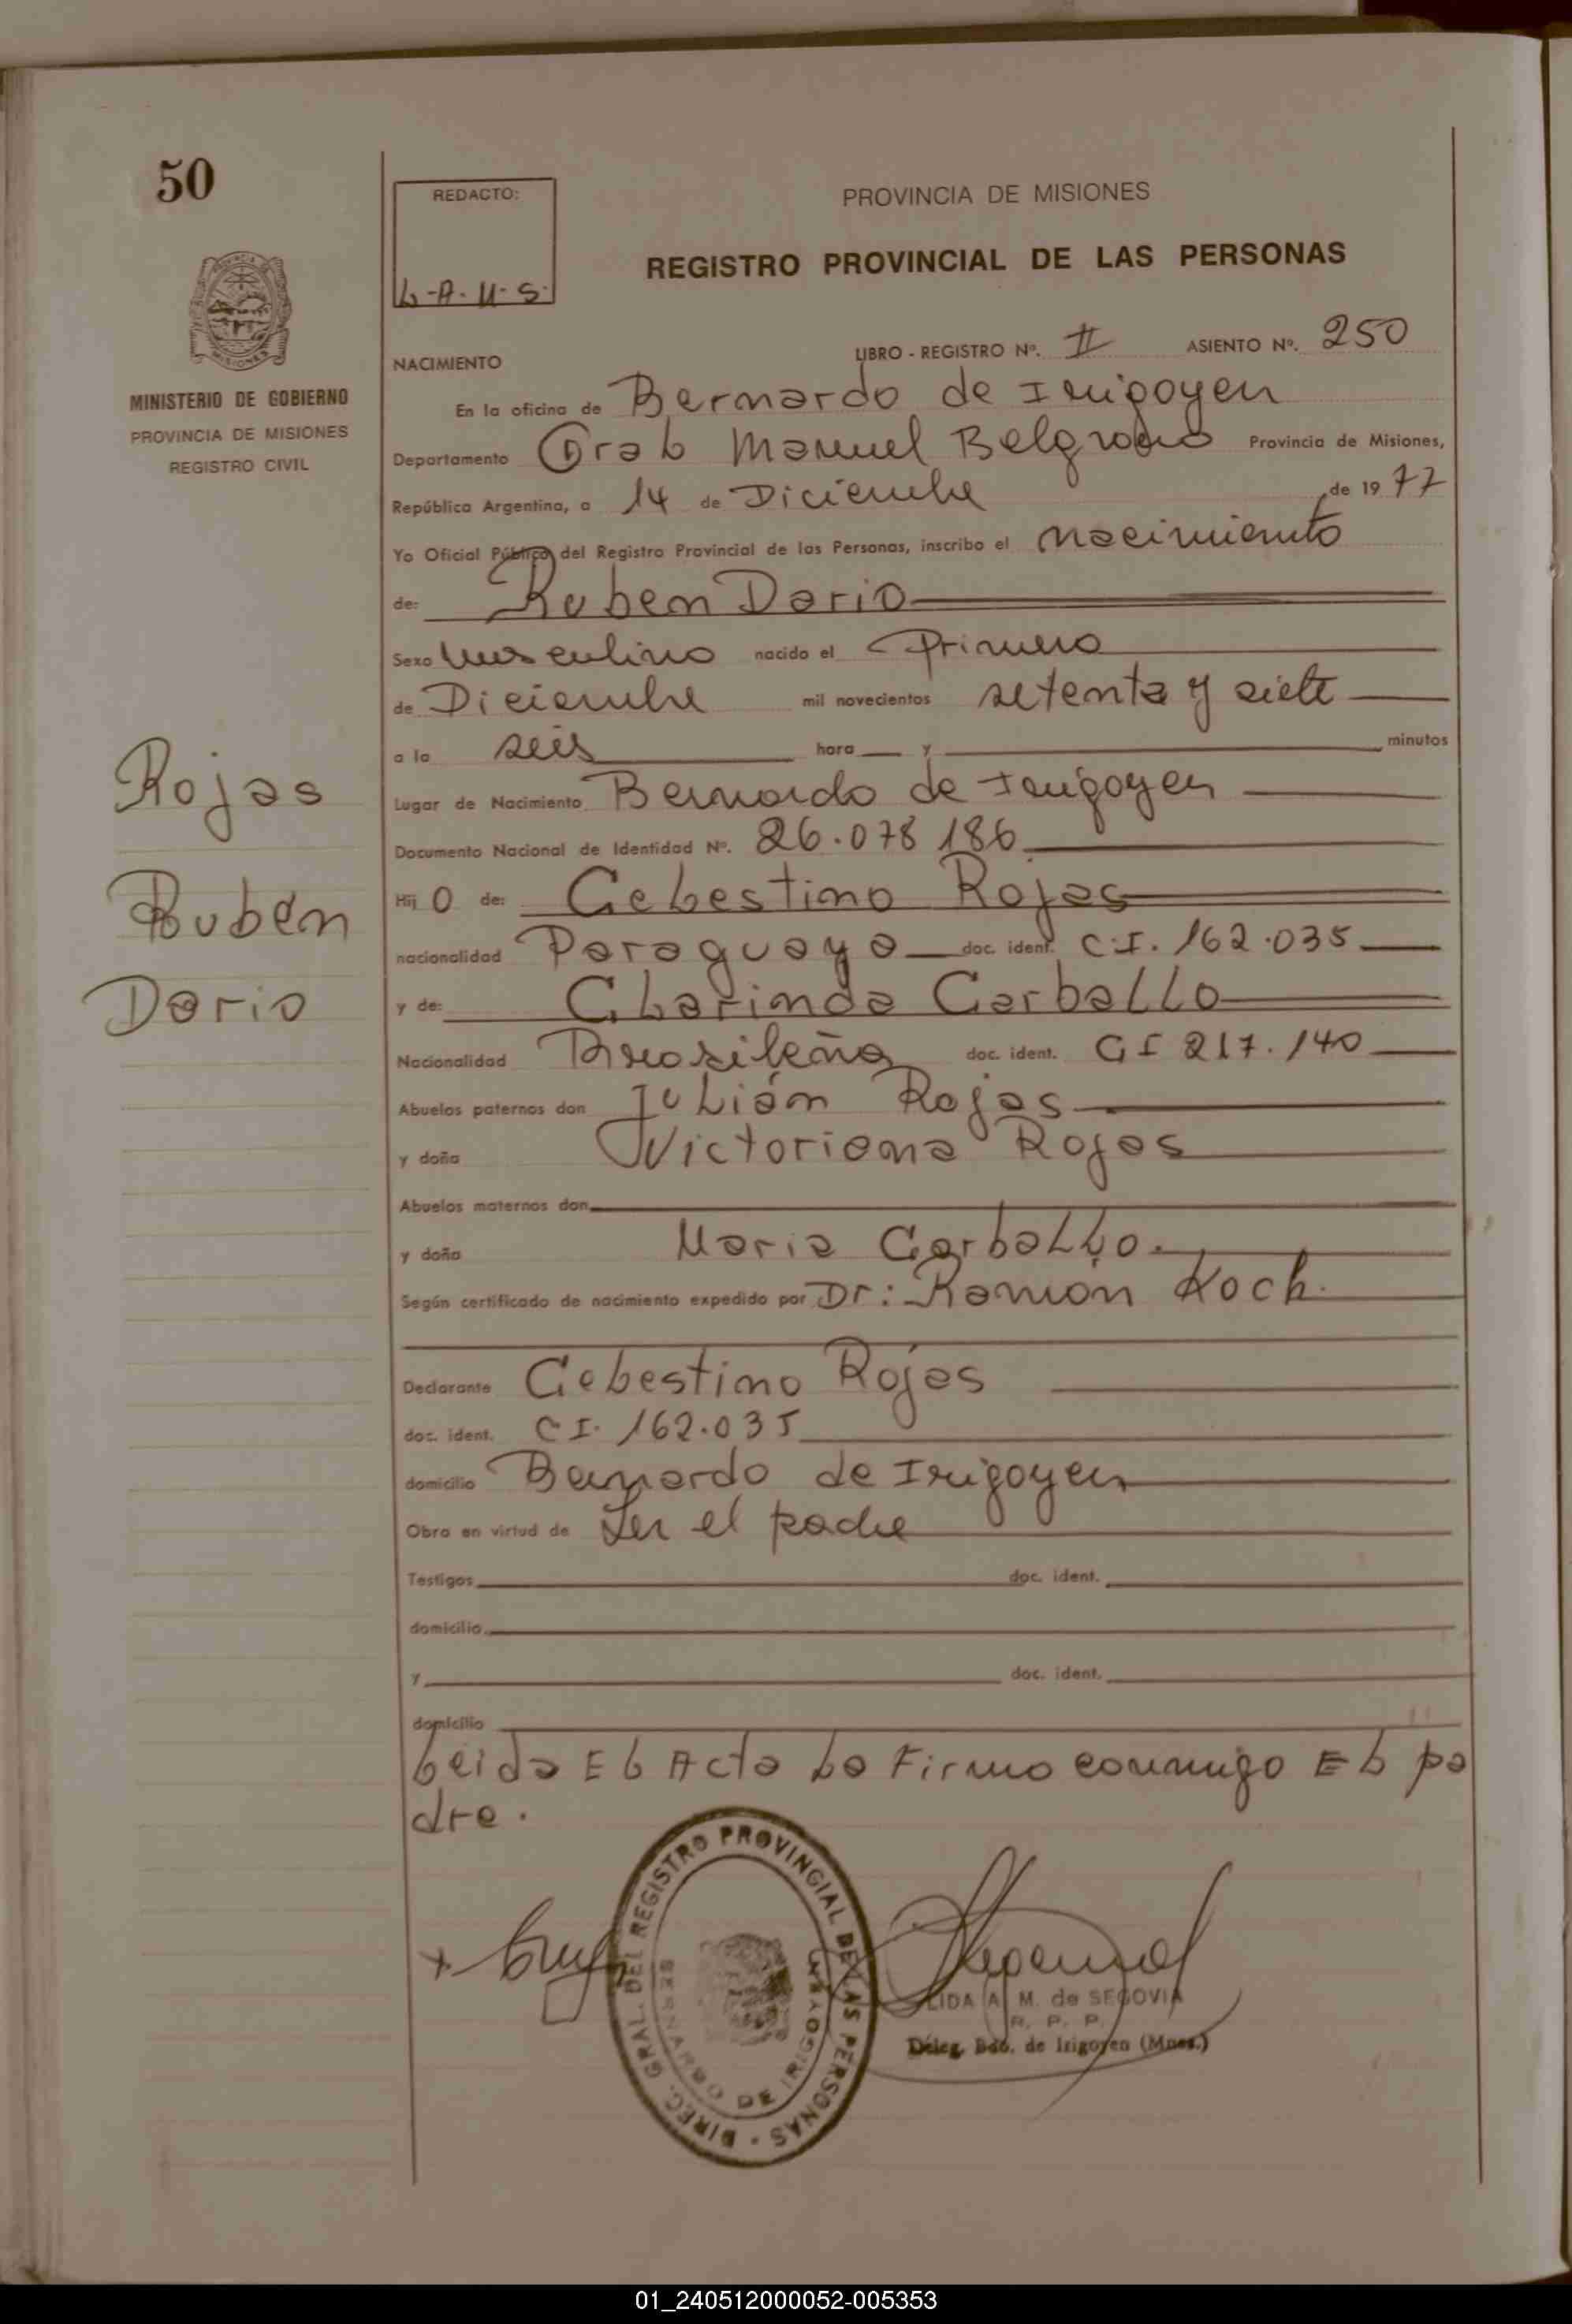 50
REDACTO:
L-A-M-S-
PROVINCIA DE MISIONES
REGISTRO PROVINCIAL DE LAS PERSONAS
MINISTERIO DE GOBIERNO
PROVINCIA DE MISIONES
REGISTRO CIVIL
NACIMIENTO LIBRO - REGISTRO Nº. II ASIENTO Nº. 250
En la oficina de Bernardo de Irigoyen
Departamento Gral Manuel Belgrano Provincia de Misiones,
República Argentina, a 14 de Diciembre de 1977
Yo Oficial Público del Registro Provincial de las Personas, inscribo el nacimiento
de: Ruben Dario
Sexo Masculino nacido el Primero
de Diciembre mil novecientos setenta y siete
a la seis hora y minutos
Lugar de Nacimiento Bernardo de Irigoyen
Documento Nacional de Identidad Nº. 26.078 186
Rojas
Rubén
Dario
Hij o de: Celestino Rojas
nacionalidad Paraguaya doc. ident. C.I. 162.035
y de: Clarinda Carballo
Nacionalidad Brasileña doc. ident. CI 217.140
Abuelos paternos don Julián Rojas
y doña Victoriana Rojas
Abuelos maternos don
y doña Maria Carballo.
Según certificado de nacimiento expedido por Dr: Ramón Koch.
Declarante Celestino Rojas
doc. ident. CI. 162.035
domicilio Bernardo de Irigoyen
Obra en virtud de Ser el padre
Testigos doc. ident.
domicilio
y doc. ident.
domicilio
Leida El Acta La Firmo conmigo El pa
dre.
DIREC. GRAL. DEL REGISTRO PROVINCIAL DE LAS PERSONAS
BERNARDO DE IRIGOYEN
LIDA A. M. de SEGOVIA
R. P. P.
Deleg. Bdo. de Irigoyen (Mnes.)
01_240512000052-005353